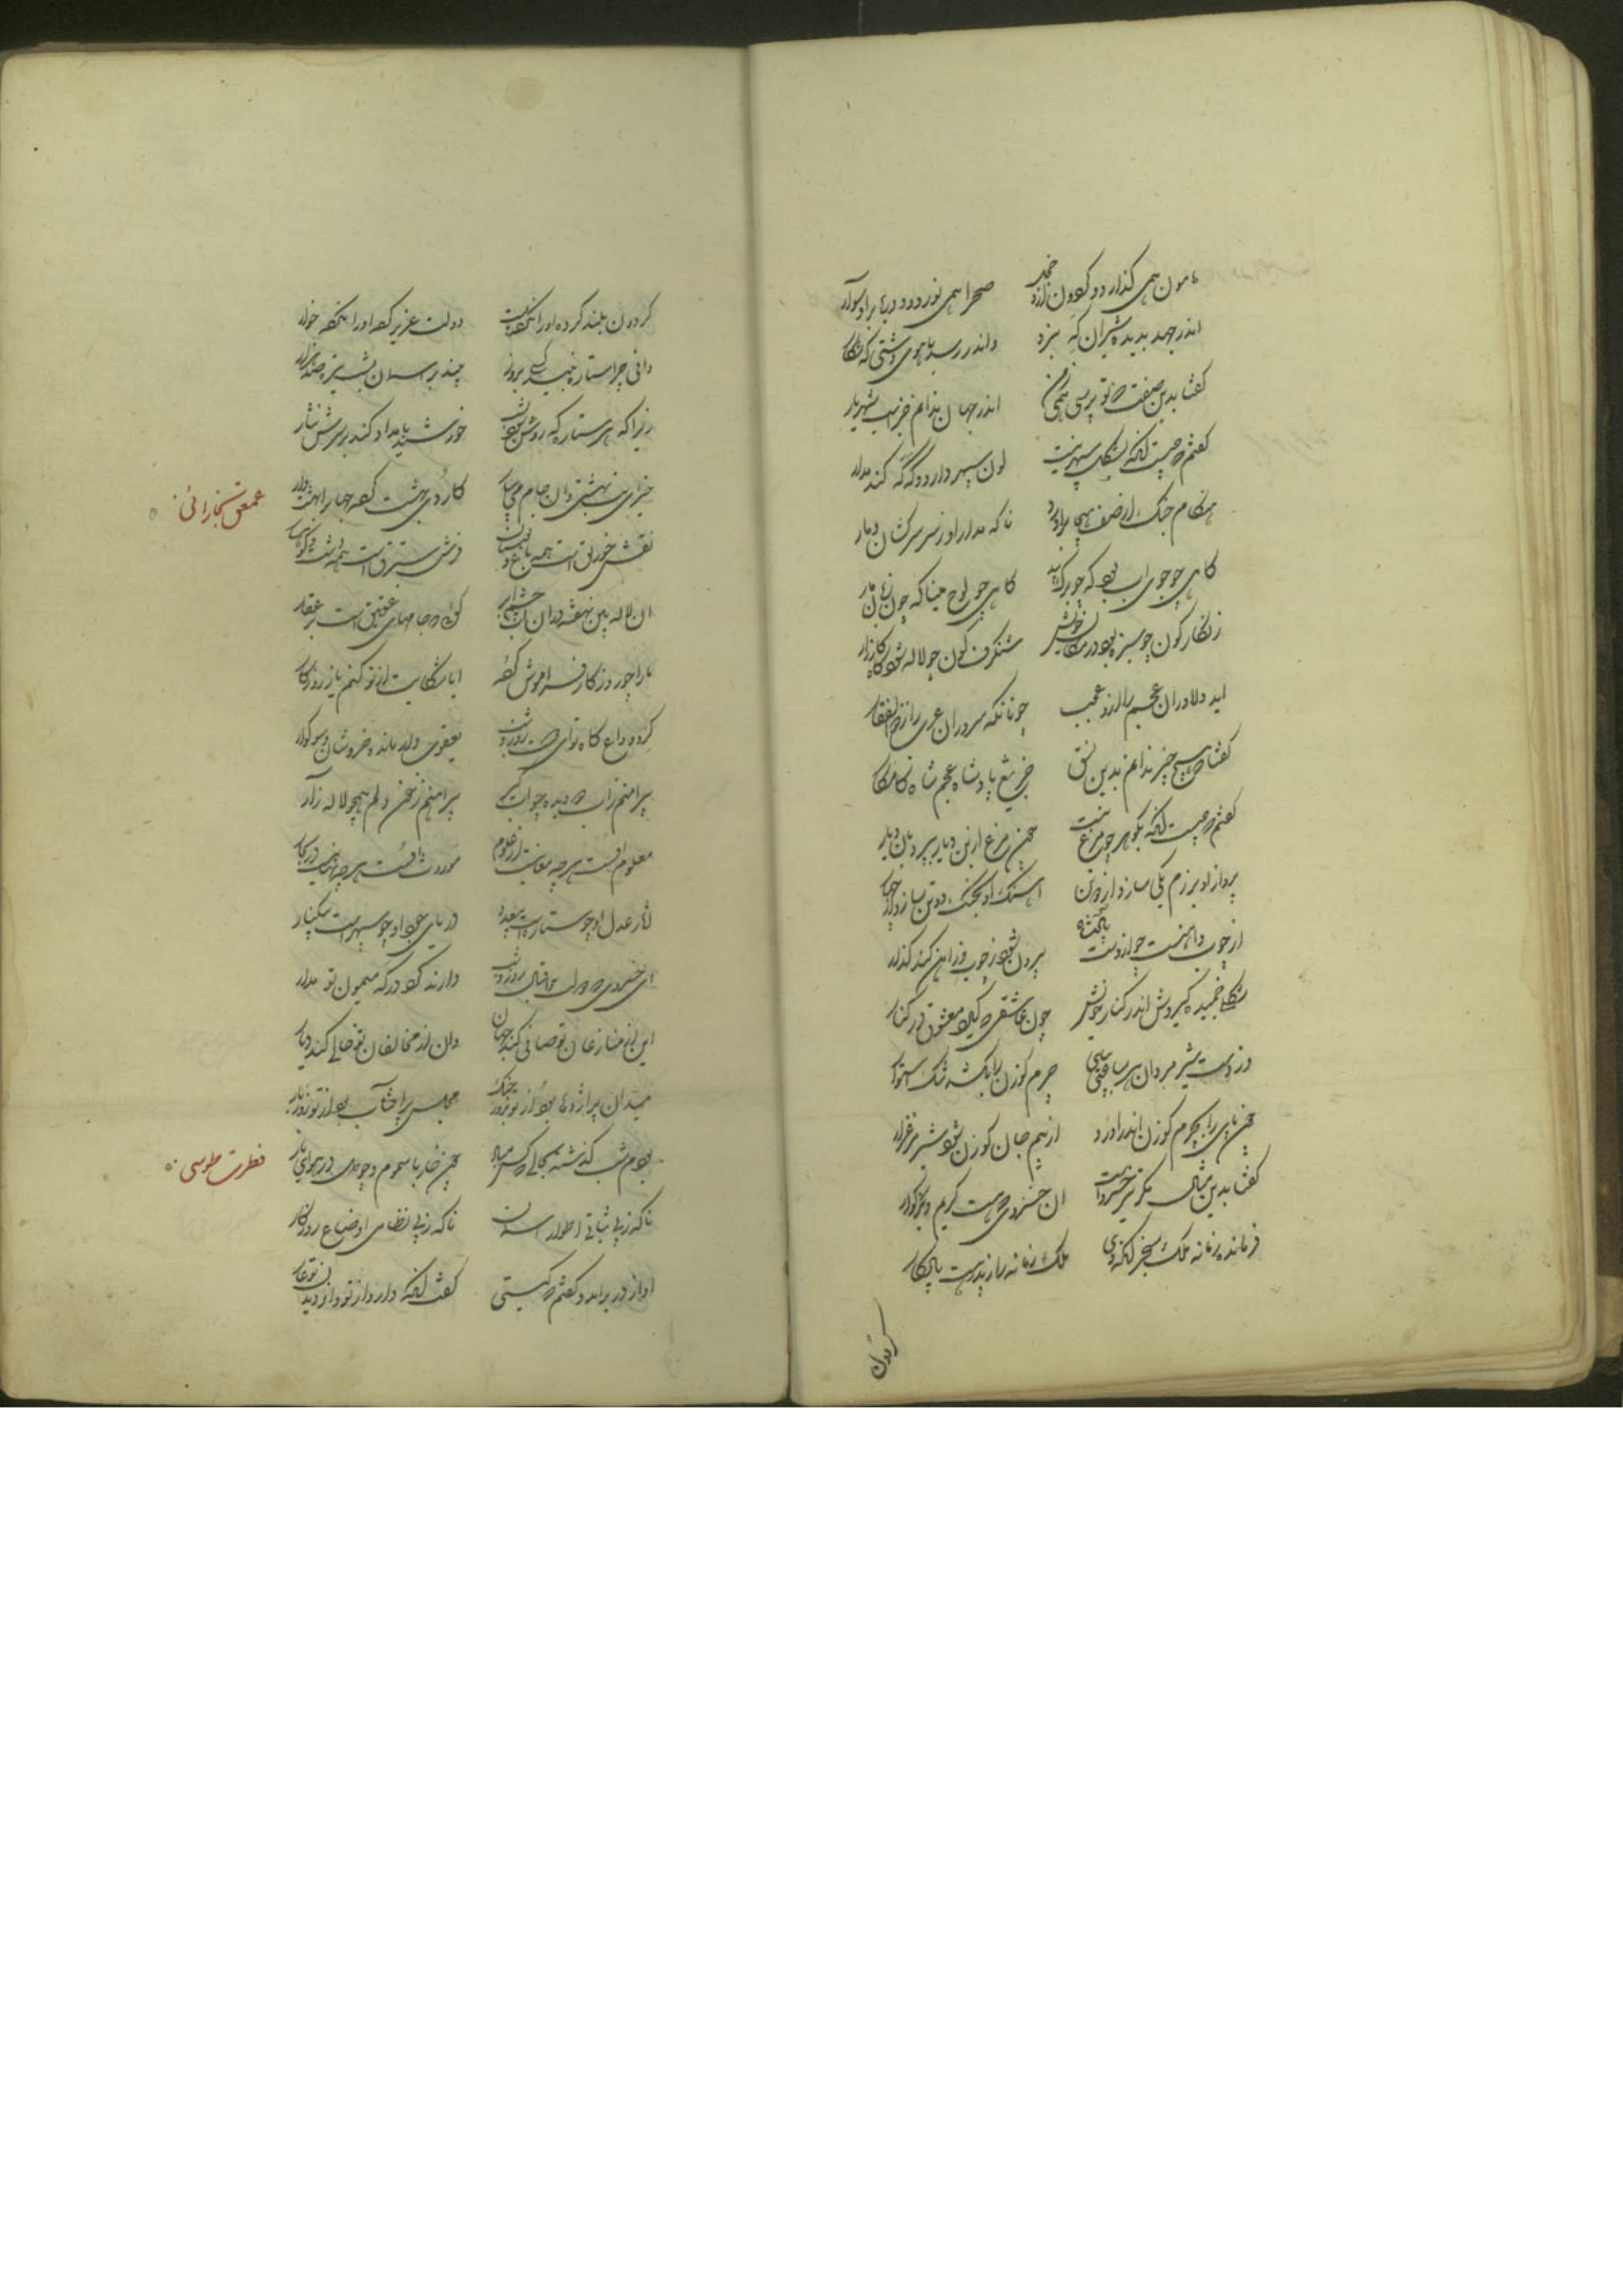 هامون همی کذارد و کردون
صحرا همی نوردد و دریا برو سوار
اندر جهد بدیده شیران که نبرد
واندر رسد باهوی دشتی که شکار
کفتا بدین صفت که تو پرسی همی ز من
اندر جهان ندانم جز اسب شهریار
کفتم که چیست انکه بشکل سپهر نیست
لون سپهر دارد و که که کند مدار
هنکام جنک از صف هیجا براورد
ناکه مدار او ز سر سرکشان دمار
کاهی چو جوی اب بود که چو برک بید
کاهی چو لوح مینا که چون زبان مار
زنکار کون چو سبزه بود در مکان خویش
شنکرف کون چو لاله شود کاه کارزار
اید دلاوران عجم را ازو عجب
چونانکه سروران عرب را ز ذوالفقار
کفتا که هیچ چیز ندانم بدین نسق
جز تیغ پادشاه عجم شاه کامکار
کفتم که چیست انکه بکوهر چو مرغ نیست
همچون مرغ ازین دیار پرد بان دیار
پرواز او برزم یکی سازد از دو تن
اهنک او بجنک دو تن سازد از چهار
از چوب و اهنست چو از دست
بیرون شود ز چوب و ز اهن کند کذار
شکل خمیده کیردش اندر کنار خویش
چون عاشقی که کیرد معشوق در کنار
وز دست شیر مردان
چرم کوزن را بکشد تنک استوار
چون پای را بچرم کوزن اندر اورد
از بیم جان کوزن شود شیر مرغزار
کفتا بدین مثال مکر تیر خسرو است
ان خسروی که هست کریم و بزرکوار
فرمانده زمانه ملک سنجر انکه
ملک زمانه را ز پدر هست یادکار
کردون
کردون بلند کرده او را نکرد پست
دولت عزیز کرد او را نکرد خوار
دانی چرا ستاره نبیند کسی بروز
چند بر اسمان بشب تیره صد هزار
زیرا که هر ستاره که روشن شود بشب
خورشید بامداد کند بر سرش نثار
عمعق بخارائی
خیز ای بت بهشتی و ان جام می بیار
کاردی بهشت کرد جهان را بهشت وار
نقش خورنق است همه باغ و بوستان
فرش ستبرق است همه دشت و کوهسار
ان لاله بین نهفته در ان اب چشم ابر
کوئی که جامهای عقیق است پر عقار
یارا چو روزکار فراموش کرد
ایا شکایت از تو کنم یا ز روزکار
کرد وداع کاه تو ای
یعقوب وار مانده خروشان و سوکوار
پیراهنم ز اب دو دیده چو ابکیر
پیراهنم ز خون دلم همچو لاله زار
معلوم اوست هر چه معانیست از علوم
موروث اوست هر چه
اثار عدل او چو ستاره است بیعدد
دریای جود او چو سپهر است بیکنار
ای خسروی که دولت و اقبال روز و شب
دارند کرد درکه میمون تو مدار
این از منازعان تو صافی کند جهان
وان از مخالفان تو خالی کند دیار
میدان پر اژدها بود از تو بروز جنک
مجلس پر افتاب بود از تو روز بار
فطرت طوسی
بودم شب کذشته بحالی که کس مباد
همچون خار با سموم و چو دی در هوای یار
ناکه ز بی ثباتی اطوار اسمان
ناکه ز بی نظامی اوضاع روزکار
اواز در برامد و کفتم که کیستی
کفت انکه دارد از تو و از دیدن تو عار